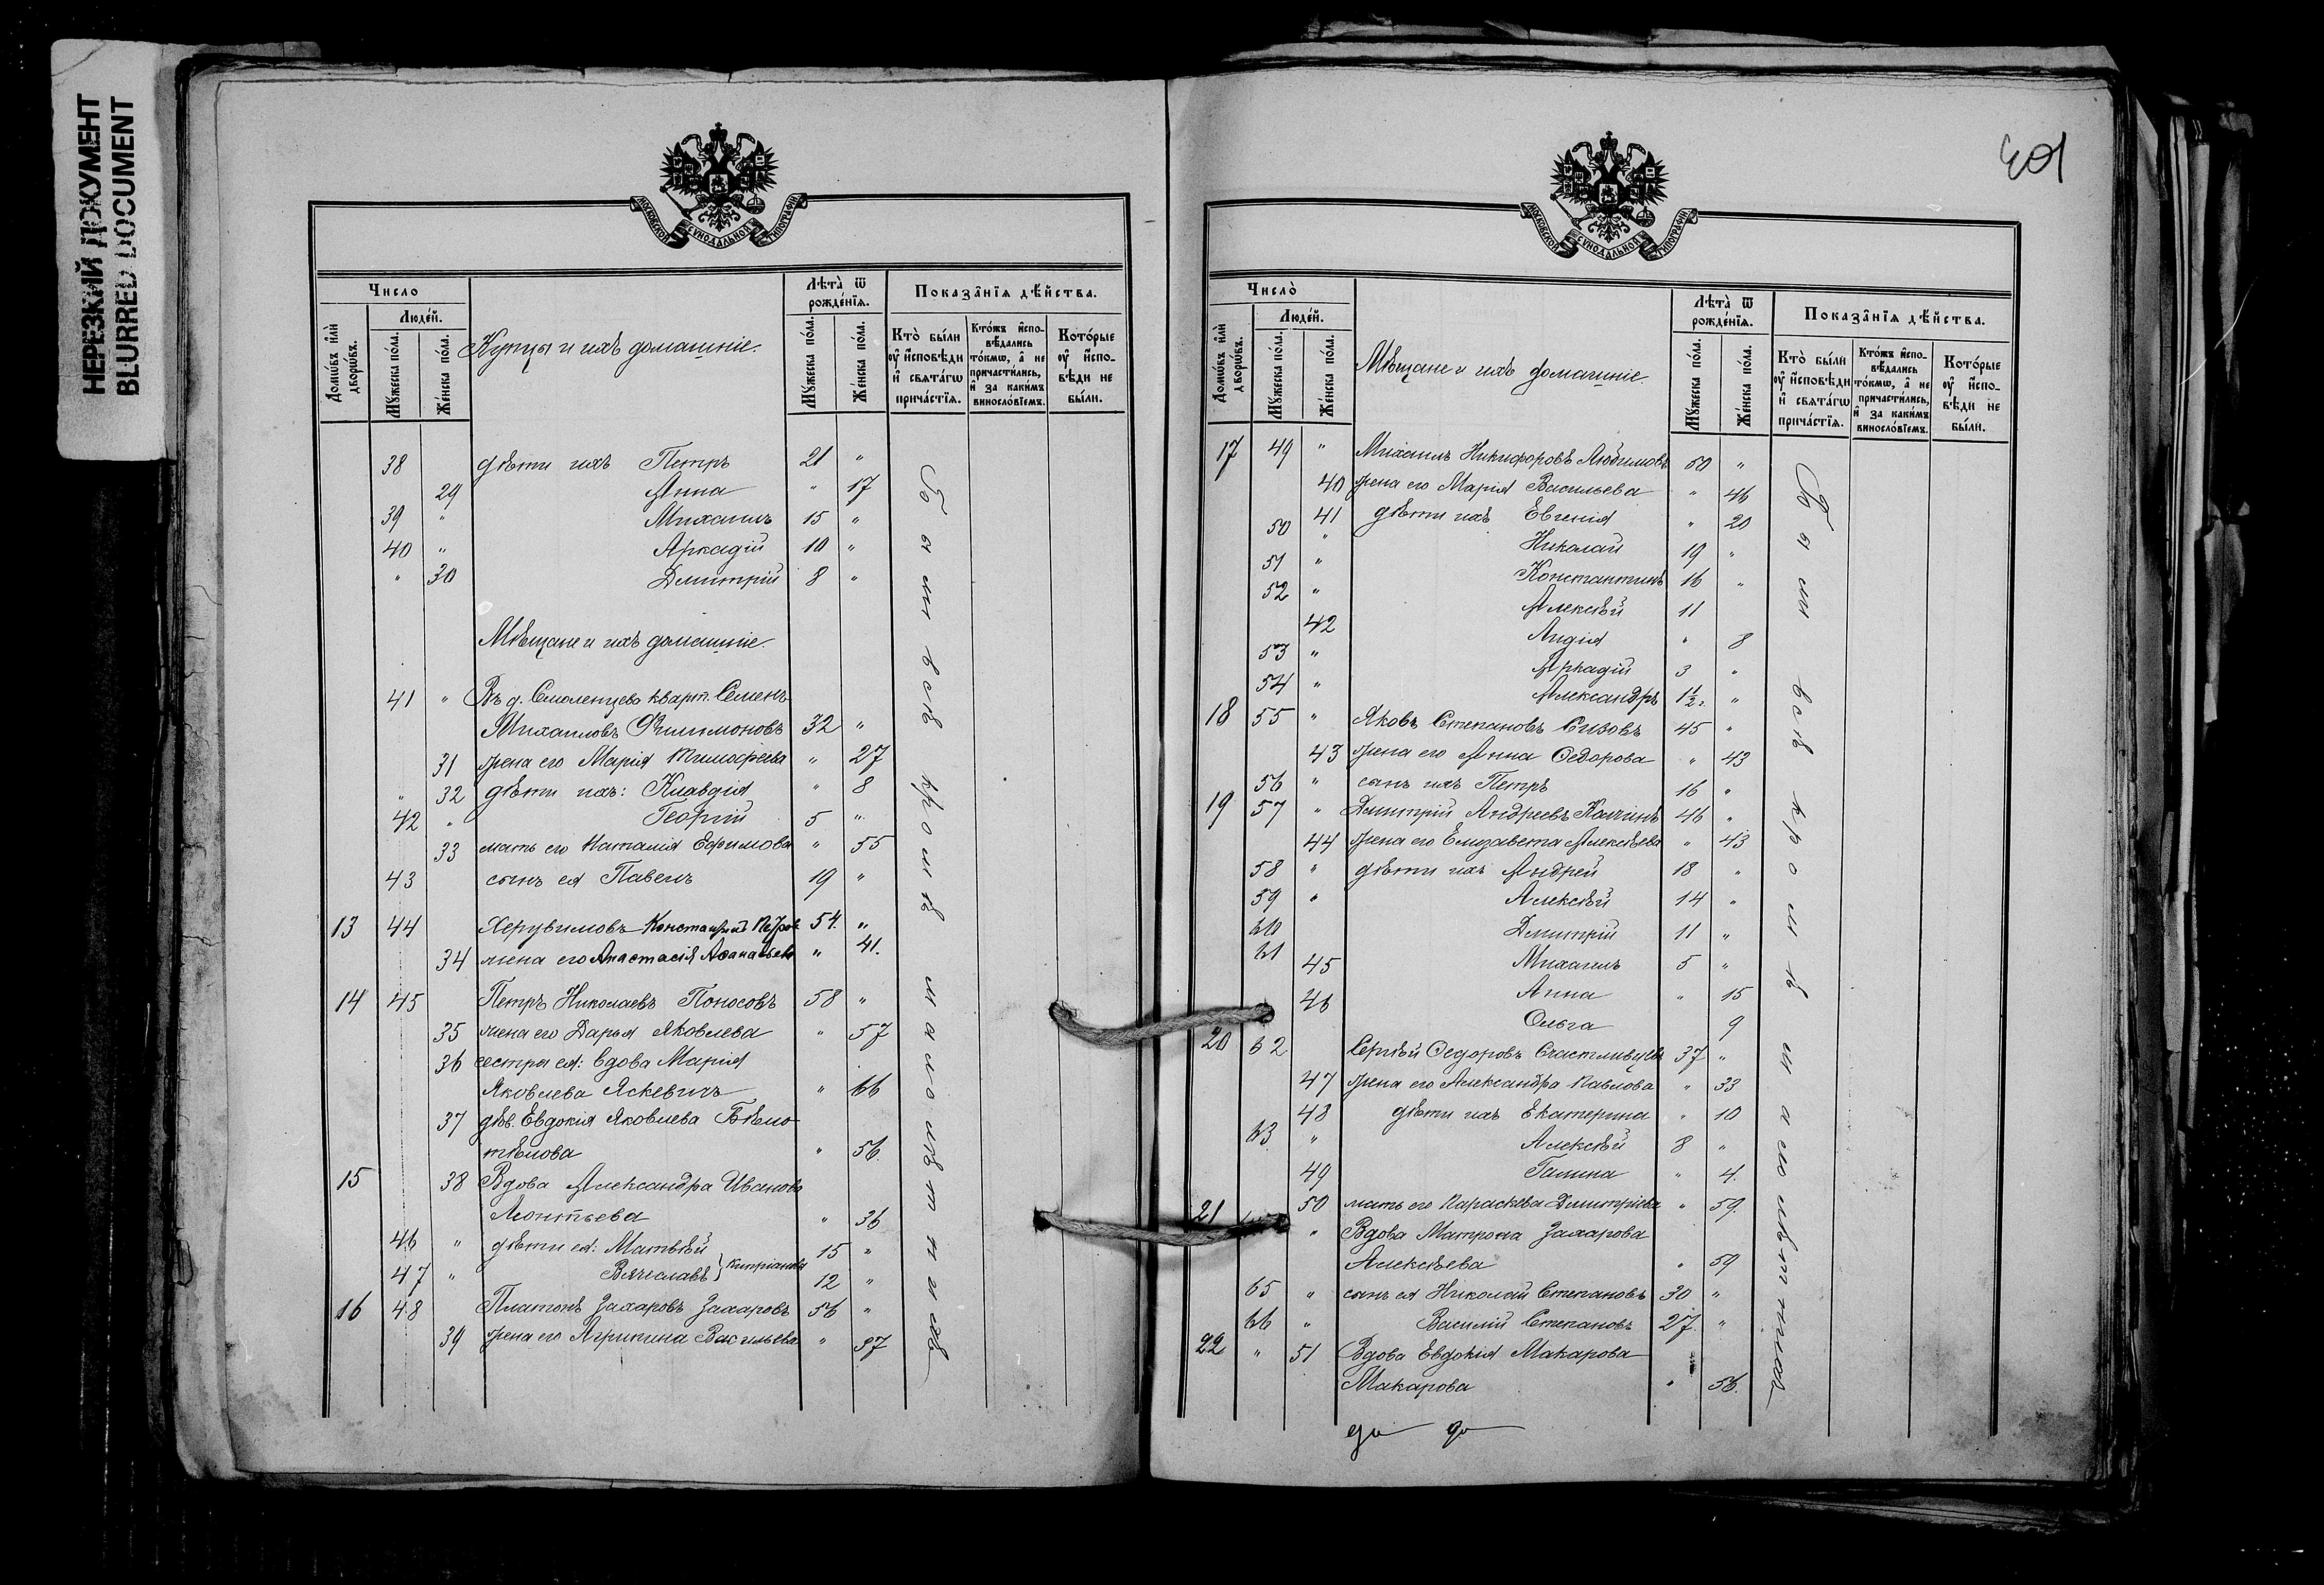 НЕРЕЗКИЙ ДОКУМЕНТ
BLURRED DOCUMENT
МОСКОВСКОЙ СѴНОДАЛЬНОЙ ТИПОГРАФІИ
Число
Людéй.
Домѡ́въ и҆лѝ дворѡ́въ.
Мꙋ́жеска по́ла.
Же́нска по́ла.
Купцы и ихъ домашніе.
Лѣта̀ ѿ рожде́нїѧ.
Мꙋ́жеска по́ла.
Же́нска по́ла.
Показа̂нїѧ дѣ́йства.
Кто̀ бы́ли оу҆ и҆сповѣ́ди и҆ свѧта́гѡ прича́стїѧ.
Кто́жъ и҆спо-вѣ́дались то́кмѡ, а҆ не причасти́лись, и҆ за каки́мъ виносло́вїемъ.
Кото́рые оу҆ и҆спо-вѣ́ди не бы́ли.
38 дѣти ихъ Петръ 21 "
29 Анна " 17
39 " Михаилъ 15 "
40 " Аркадій 10 "
" 30 Дмитрій 8 "
Мѣщане и ихъ домашніе.
41 " Въ д. Смоленцево кварт. Семенъ
Михаиловъ Филимоновъ 32 "
31 жена его Марія Тимофеева " 27
" 32 дѣти ихъ: Клавдія " 8
42 " Георгій 5 "
33 мать его Наталія Ефимова " 55
43 сынъ ея Павелъ 19 "
13 44 Херувимовъ 54. "
34 жена его Анастасія " 41.
14 45 Петръ Николаевъ Поносовъ 58 "
35 жена его Дарья Яковлева " 57
36 сестры ея: вдова Марія
Яковлева Яскевичъ " 66
37 дѣв. Евдокія Яковлева Бѣло
тѣлова " 56.
15 38 Вдова Александра Иванова
Леонтьева " 36
46 " дѣти ея: Матвѣй 15 "
47 " Вячеславъ } Кипріановы 12 "
16 48 Платонъ Захаровъ Захаровъ 56 "
39 жена его Агрипина Васильева " 37
Были всѣ кромѣ малолѣтнихъ
103
МОСКОВСКОЙ СѴНОДАЛЬНОЙ ТИПОГРАФІИ
Число̀
Людéй.
Домѡ́въ и҆лѝ дворѡ́въ.
Мꙋ́жеска по́ла.
Же́нска по́ла.
Мѣщане и ихъ домашніе
Лѣта̀ ѿ рожде́нїѧ.
Мꙋ́жеска по́ла.
Же́нска по́ла.
Показа̂нїѧ дѣ́йства.
Кто̀ бы́ли оу҆ и҆сповѣ́ди и҆ свѧта́гѡ прича́стїѧ.
Кто́жъ и҆спо-вѣ́дались то́кмѡ, а҆ не причасти́лись, и҆ за каки́мъ виносло́вїемъ.
Кото́рые оу҆ и҆спо-вѣ́ди не бы́ли.
17 49 " Михаилъ Никифоровъ Любимовъ 50 "
40 жена его Марія Васильева " 46
41 дѣти ихъ Евгенія " 20
50 " Николай 19 "
51 " Константинъ 16 "
52 " Алексѣй 11
42 Лидія " 8
53 " Аркадій 3 "
54 " Александръ 1½ "
18 55 " Яковъ Степановъ Сизовъ 45 "
43 жена его Анна Ѳедорова " 43
56 " сынъ ихъ Петръ 16 "
19 57 " Дмитрій Андреевъ 46 "
44 жена его Елизавета Алексѣева " 43
58 " дѣти ихъ Андрей 18 "
59 " Алексѣй 14 "
60 Дмитрій 11 "
61 Михаилъ 5 "
45 Анна " 15
46 Ольга 9
20 62 Сергѣй Ѳедоровъ Счастливцевъ 37 "
47 жена его Александра Павлова " 33
48 дѣти ихъ Екатерина " 10
63 " Алексѣй 8 "
49 Галина " 4.
50 мать его Параскева Дмитріева " 59.
21 " Вдова Матрона Захарова
Алексѣева " 59
65 " сынъ ея Николай Степановъ 30 "
66 " Василій Степановъ 27. "
22 " 51 Вдова Евдокія Макарова
Макарова " 56.
Были всѣ кромѣ малолѣтнихъ